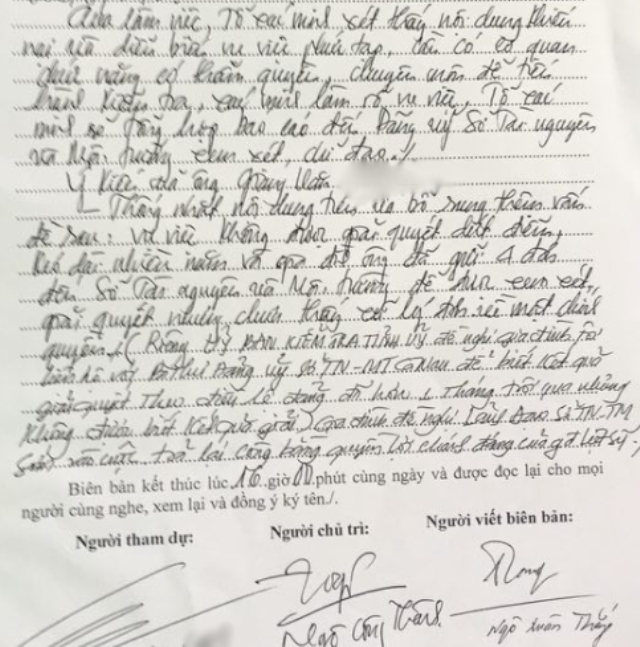 Qua làm việc, Tổ xác minh xét thấy nội dung khiếu
nại và diễn biến vụ việc phức tạp, cần có cơ quan
chức năng có thẩm quyền, chuyên môn để tiến
hành kiểm tra, xác minh làm rõ vụ việc, Tổ xác
minh sẽ tổng hợp báo cáo đến Đảng uỷ Sở Tài nguyên
và Môi trường xem xét, chỉ đạo./.
Ý kiến của ông Giang Văn
- Thống nhất nội dung trên và bổ sung thêm vấn
đề sau: vụ việc không được giải quyết dứt điểm,
kéo dài nhiều năm và qua đó ông đã gửi 4 đơn
đến Sở Tài nguyên và Môi trường để được xem xét,
giải quyết nhưng chưa thấy về một chính
quyền. (Riêng UỶ BAN KIỂM TRA TỈNH UỶ đề nghị gia đình tôi
liên hệ với Bí thư Đảng uỷ Sở TN-MT Cà Mau để biết kết quả
giải quyết theo điều lệ đảng đã hơn 1 tháng trôi qua nhưng
không được biết kết quả giải) Gia đình đề nghị Lãnh Đạo Sở TN.TM
vào cuộc trả lại công bằng quyền lợi chính đáng của gđ liệt sỹ;
Biên bản kết thúc lúc 16 giờ 00 phút cùng ngày và được đọc lại cho mọi
người cùng nghe, xem lại và đồng ý ký tên./.
Người tham dự: Người chủ trì: Người viết biên bản:
Ngô Công Ngô Xuân